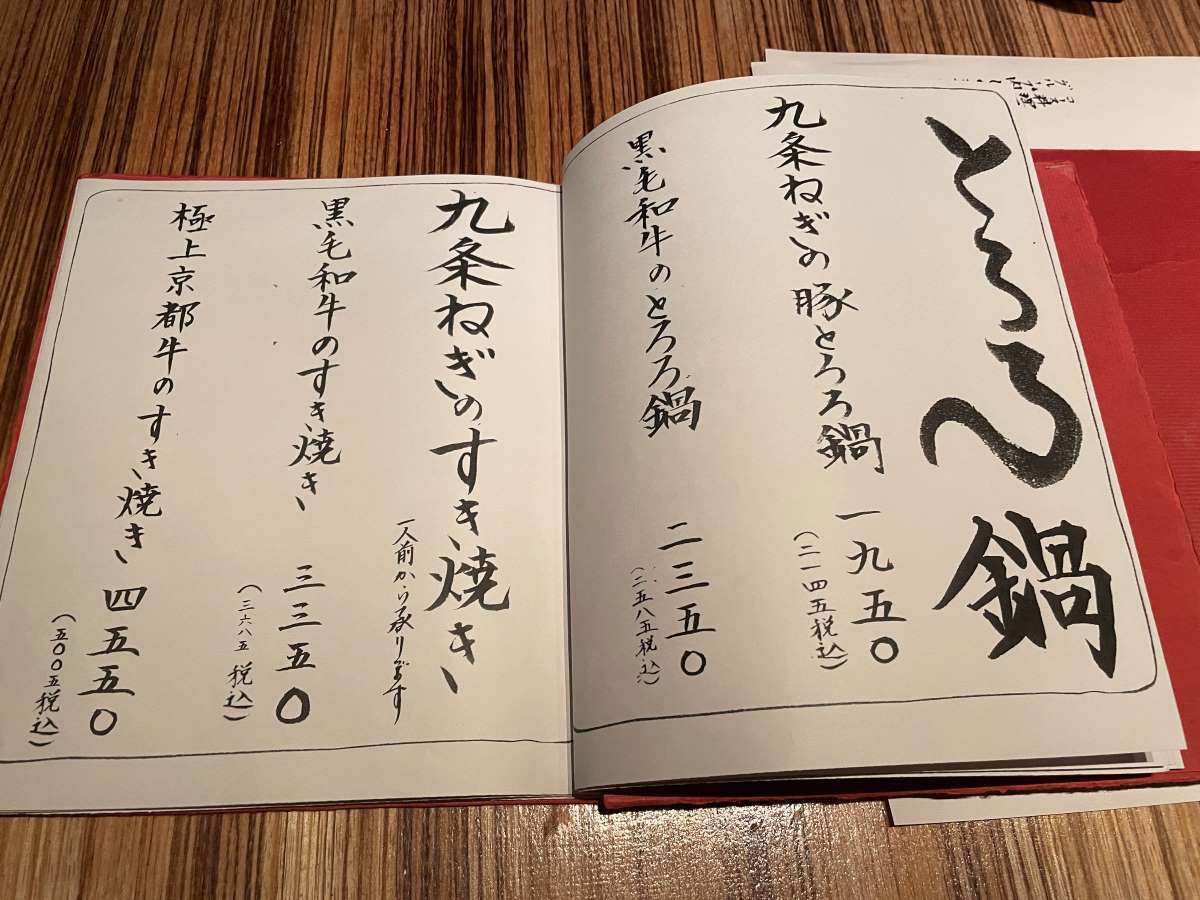 とろろ鍋
九条ねぎの豚とろろ鍋 一九五〇
(二一四五税込)
黒毛和牛のとろろ鍋 二三五〇
(二五八五税込)
九条ねぎのすき焼き
一人前から承ります
黒毛和牛のすき焼き 三三五〇
(三六八五税込)
極上京都牛のすき焼き 四五五〇
(五〇〇五税込)